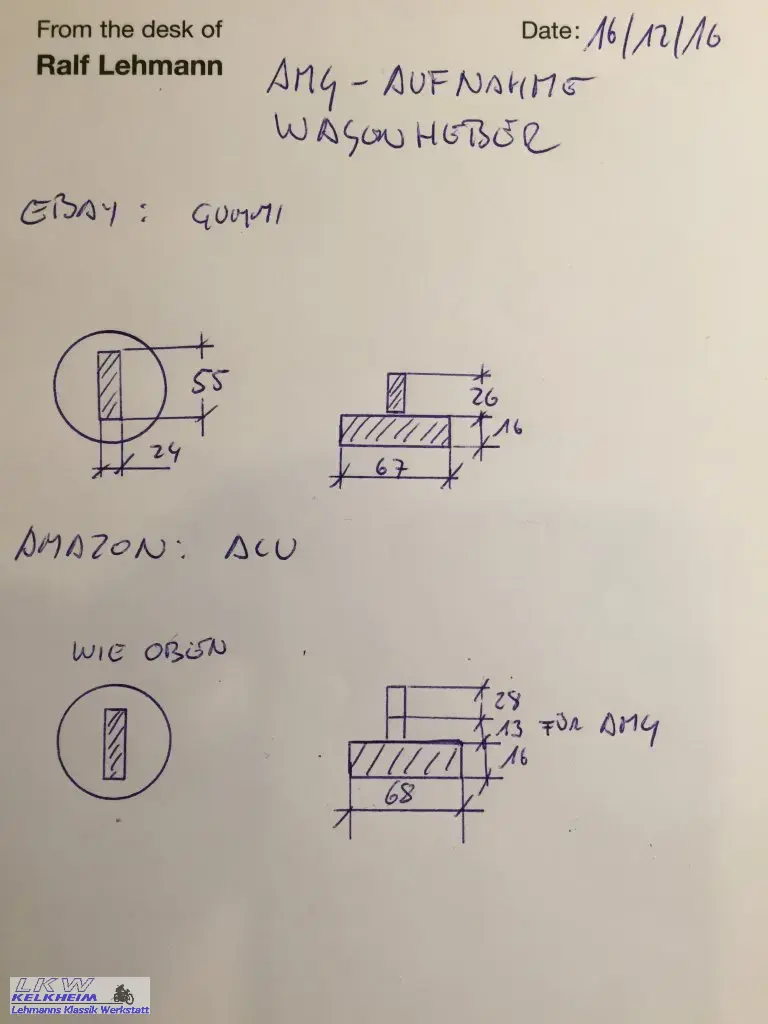 From the desk of
Ralf Lehmann
Date: 16/12/16
AMG - AUFNAHME
WAGENHEBER
EBAY: GUMMI
55
24
26
16
67
AMAZON: ALU
WIE OBEN
28
13 FÜR AMG
16
68
LKW
KELKHEIM
Lehmanns Klassik Werkstatt